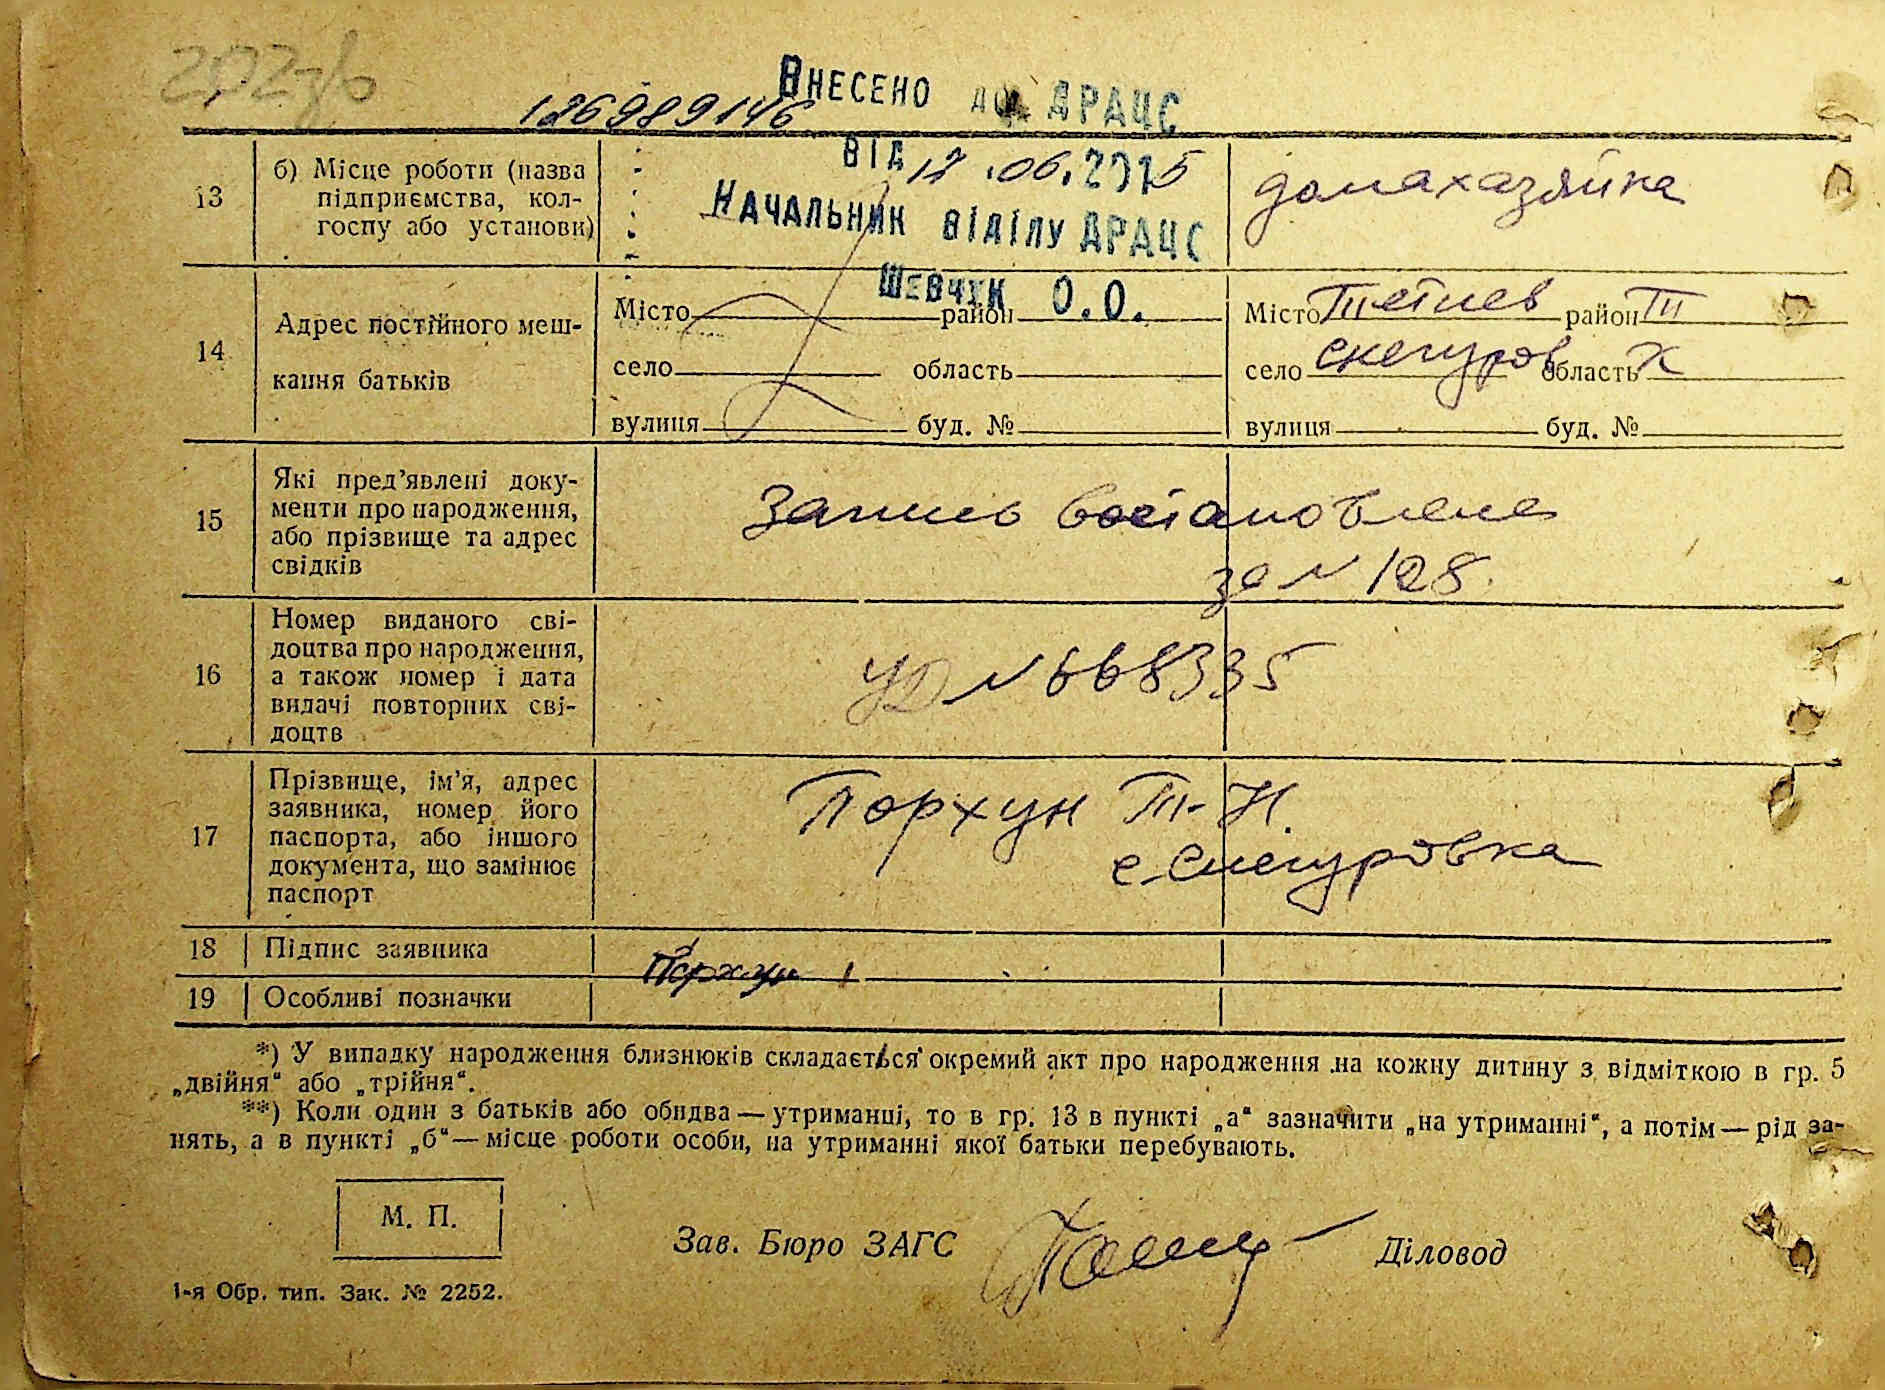 202зв
126989146
ВНЕСЕНО ДО ДРАЦС
ВІД 12.06.2015
НАЧАЛЬНИК ВІДІЛУ ДРАЦС
ШЕВЧУК О.О.
13 б) Місце роботи (назва
підприємства, кол-
госпу або установи)
домахазяйка
14 Адрес постійного меш-
кання батьків
Місто район
село область
вулиця буд. №
Місто Тетиев район Тп
село Снегуров область К
вулиця буд. №
15 Які пред’явлені доку-
менти про народження,
або прізвище та адрес
свідків
Запись востановлена
за N 128.
16 Номер виданого сві-
доцтва про народження,
а також номер і дата
видачі повторних сві-
доцтв
УД N 668335
17 Прізвище, ім’я, адрес
заявника, номер його
паспорта, або іншого
документа, що замінює
паспорт
Порхун Т. Н.
с. Снегуровка
18 Підпис заявника
Порхун
19 Особливі позначки
*) У випадку народження близнюків складається окремий акт про народження на кожну дитину з відміткою в гр. 5
„двійня“ або „трійня“.
**) Коли один з батьків або обидва — утриманці, то в гр. 13 в пункті „а“ зазначити „на утриманні“, а потім — рід за-
нять, а в пункті „б“ — місце роботи особи, на утриманні якої батьки перебувають.
М. П.
Зав. Бюро ЗАГС Діловод
1-я Обр. тип. Зак. № 2252.